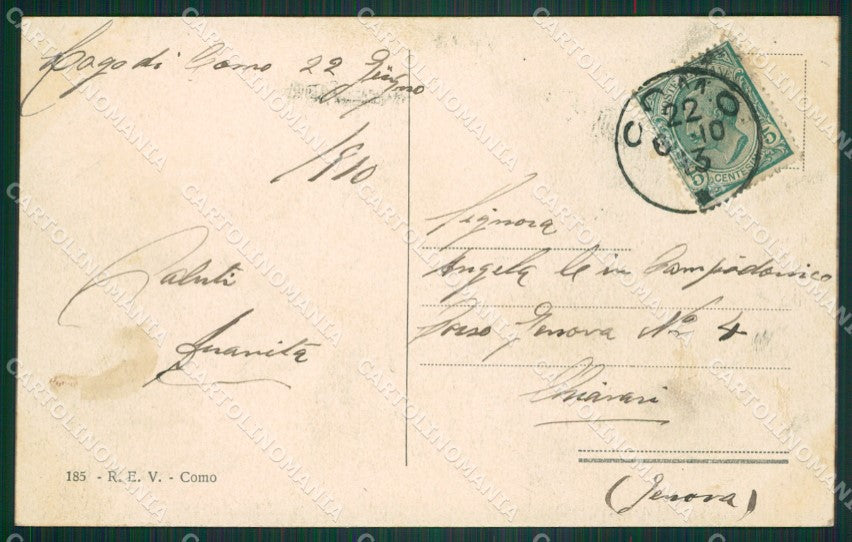 Lago di Como 22 Giugno
1910
Saluti
Juanita
185 - R. E. V. - Como
COMO
22
10
5
CENTESIMI
5
Signora
Angela Campodonico
Corso Genova No 4
Chiavari
(Genova)
CARTOLINOMANIA